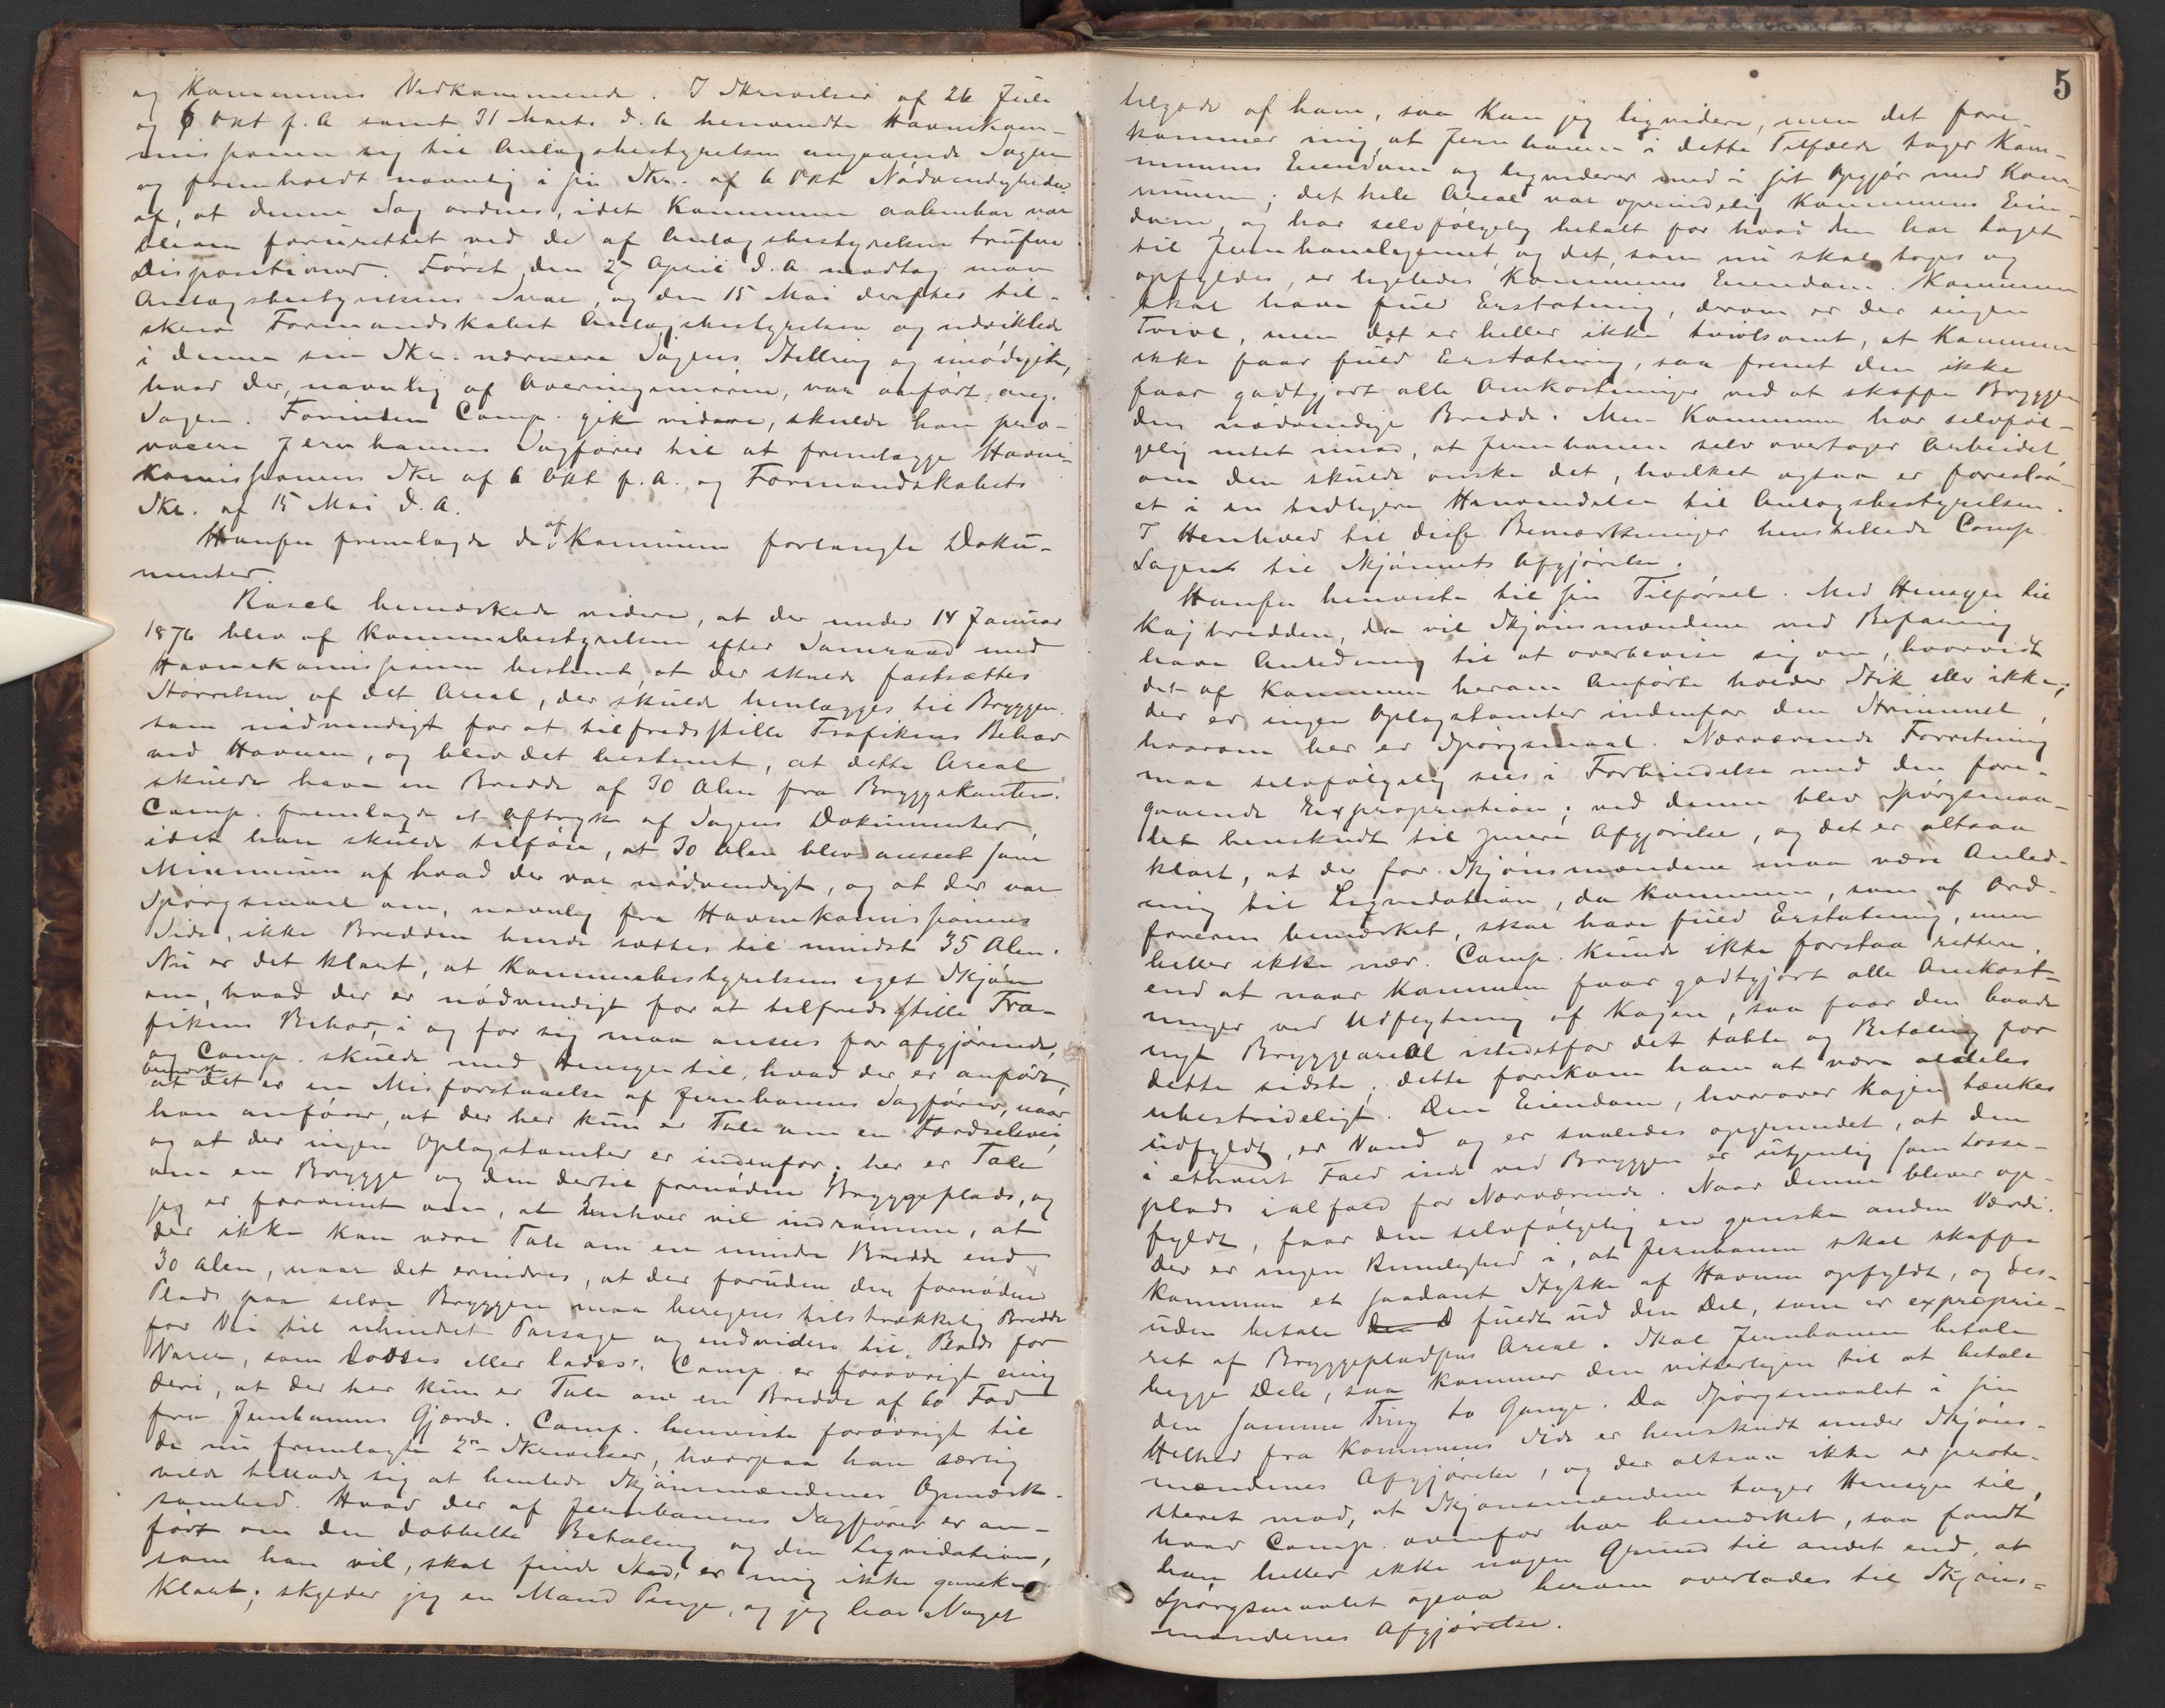 og Kommunens Vedkommende. I Skrivelser af 26 Juli
og 6 Okt f. A samt 31 Marts d. A henvendte Havnekom-
missionen sig til Anlægsbestyrelsen angaaende Sagen
og fremholdt navnlig i sin Skr. af 6 Okt Nødvendigheden
af, at denne Sag ordnes, idet Kommunen aabenbar var
bleven forurettet ved de af Anlægsbestyrelsen trufne
Dispositioner. Først den 27 April d. A modtog man
Anlægsbestyrelsens Svar, og den 15 Mai derefter til-
skrev Formandskabet Anlægsbestyrelsen og udviklede
i denne sin Skr. nærmere Sagens Stilling og imødegik,
hvad der, navnlig af Overingeniøren, var anført ang.
Sagen. Forinden Comp. gik videre, skulde han pro-
vocere Jernbanens Sagfører til at fremlægge Havne-
komissionens Skr af 6 Okt f. A. og Formandskabets
Skr. af 15 Mai d. A.
Hansen fremlagde de af Kommunen forlangte Doku-
menter.
Rasch bemærkede videre, at der under 14 Januar
1876 blev af Kommunebestyrelsen efter Samraad med
Havnekomissionen bestemt, at der skulde fastsættes
Størrelsen af det Areal, der skulde henlægges til Bryggen
som nødvendigt for at tilfredsstille Trafikens Behov
ved Havnen, og blev det bestemt, at dette Areal
skulde have en Bredde af 30 Alen fra Bryggekanten.
Comp. fremlagde et Aftryk af Sagens Dokumenter,
idet han skulde tilføie, at 30 Alen blev anseet som
Minimum af hvad der var nødvendigt, og at der var
Spørgsmaal om, navnlig fra Havnekomissionens
Side, ikke Bredden burde sættes til mindst 35 Alen.
Nu er det klart, at Kommunebestyrelsens eget Skjøn
om, hvad der er nødvendigt for at tilfredsstille Tra-
fikens Behov, i og for sig maa ansees for afgjørende,
og Comp. skulde med Hensyn til, hvad der er anført,
bemærke at det er en Misforstaaelse af Jernbanens Sagfører, naar
han anfører, at der her kun er Tale om en Færdselsvei
og at der ingen Oplagstomter er indenfor; her er Tale
om en Brygge og den dertil fornødne Bryggeplads, og
jeg er forvisset om, at Enhver vil indrømme, at
der ikke kan være Tale om en mindre Bredde end
30 Alen, naar det erindres, at der foruden den fornødne
Plads paa selve Bryggen maa beregnes tilstrækkelig Bredde
for Vei til uhindret Passage og endvidere til Plads for
Varer, som losses eller lades. Comp. er forøvrigt enig
deri, at der her kun er Tale om en Bredde af 60 Fod
fra Jernbanens Gjærde. Comp. henviste forøvrigt til
de nu fremlagte 2de Skrivelser, hvorpaa han særlig
vilde tillade sig at henlede Skjønsmændenes Opmærk-
somhed. Hvad der af Jernbanens Sagfører er an-
ført om den dobbelte Betaling og den Liqvidation,
som han vil, skal finde Sted, er mig ikke ganske
klart; skylder jeg en Mand Penge, og jeg har Noget
5
tilgode af ham, saa kan jeg liqvidere, men det fore-
kommer mig, at Jernbanen i dette Tilfælde tager Kom-
munens Eiendom og liqviderer med i sit Opgjør med Kom-
munen; det hele Areal var oprindelig Kommunens Eien-
dom, og har selvfølgelig betalt for hvad den har taget
til Jernbanelegemet, og det, som nu skal tages og
opfyldes, er ligeledes Kommunens Eiendom. Kommunen
skal have fuld Erstatning, derom er der ingen
Tvivl, men det er heller ikke tvivlsomt, at Kommunen
ikke faar fuld Erstatning, saa fremt den ikke
faar godtgjort alle Omkostninger ved at skaffe Bryggen
den nødvendige Bredde. Men Kommunen har selvføl-
gelig intet imod, at Jernbanen selv overtager Arbeidet,
om den skulde ønske det, hvilket ogsaa er foreslaa-
et i en tidligere Henvendelse til Anlægsbestyrelsen.
I Henhold til disse Bemærkninger henstillede Comp.
Sagen til Skjønnets Afgjørelse.
Hansen henviste til sin Tilførsel. Med Hensyn til
Kajbredden, da vil Skjønsmændene ved Befaring
have Anledning til at overbevise sig om, hvorvidt
det af Kommunen herom Anførte holder Stik eller ikke;
der er ingen Oplagstomter indenfor den Strimmel,
hvorom her er Spørgsmaal. Nærværende Forretning
maa selvfølgelig sees i Forbindelse med den fore-
gaaende Expropriation; ved denne blev Spørgsmaa-
let henskudt til senere Afgjørelse, og det er altsaa
klart, at der for Skjønsmændene maa være Anled-
ning til Liqvidation, da Kommunen, som af Ord-
føreren bemærket, skal have fuld Erstatning, men
heller ikke mer. Comp. kunde ikke forstaa rettere,
end at naar Kommunen faar godtgjort alle Omkost-
ninger ved Udflytning af Kajen, saa faar den baade
nyt Bryggeareal istedetfor det tabte og Betaling for
dette sidste; dette forekom ham at være aldeles
ubestrideligt. Den Eiendom, hvorover Kajen tænkes
udfyldt, er Vand og er saaledes opgrundet, at den
i ethvert Fald inde ved Bryggen er utjenlig som Losse-
plads ialfald for Nærværende. Naar denne bliver op-
fyldt, faar den selvfølgelig en ganske anden Værdi.
Der er ingen Rimelighed i, at Jernbanen skal skaffe
Kommunen et saadant Stykke af Havnen opfyldt, og des-
uden betale den D fuldt ud den Del, som er exproprie-
ret af Bryggepladsens Areal. Skal Jernbanen betale
begge Dele, saa kommer den vitterligen til at betale
den samme Ting to Gange. Da Spørgsmaalet i sin
Helhed fra Kommunens Side er henskudt under Skjøns-
mændenes Afgjørelse, og der altsaa ikke er prote-
steret mod, at Skjønsmændene tager Hensyn til,
hvad Comp. ovenfor har bemærket, saa fandt
han heller ikke nogen Grund til andet end, at
Spørgsmaalet ogsaa herom overlades til Skjøns-
mændenes Afgjørelse.